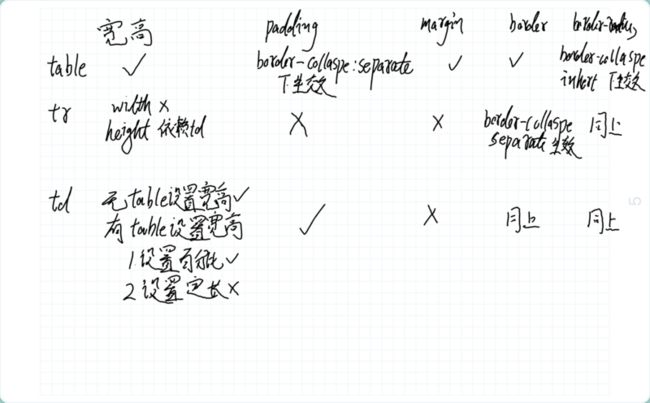 宽高 padding margin border border-radius
table ✓ border-collaspe:separate ✓ ✓ border-collaspe
下生效 inhert 下生效
tr width × × × border-collaspe 同上
height 依赖td separate 生效
td 无table设置宽高✓ ✓ × 同上 同上
有table设置宽高
1 设置百分比✓
2 设置定长×
5